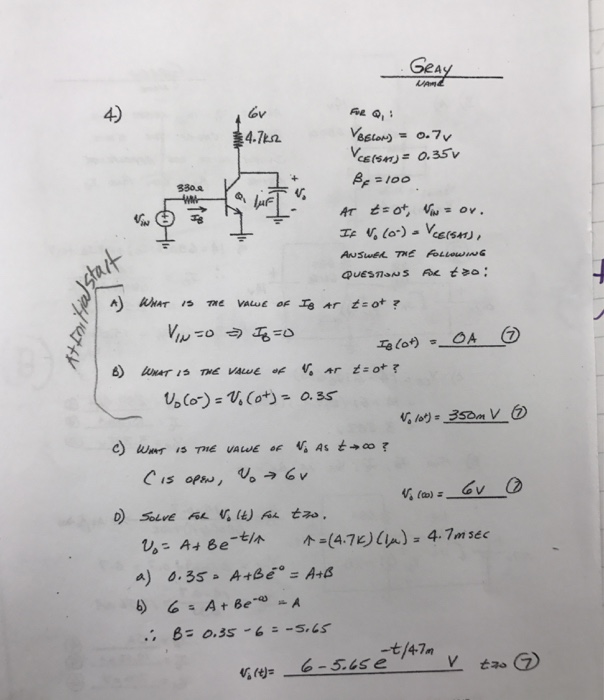 GRAY
NAME
4)
6V
4.7kΩ
330Ω
Q₁
1µF
+
V₀
-
VIN
IB
FOR Q₁:
VBE(ON) = 0.7V
VCE(SAT) = 0.35V
βF = 100
AT t=0⁺, VIN = 0V.
IF V₀(0-) = VCE(SAT),
ANSWER THE FOLLOWING
QUESTIONS FOR t≥0:
At Initial start
A) WHAT IS THE VALUE OF IB AT t=0+?
VIN=0 ⇒ IB=0
IB(0+) = 0A ⑦
B) WHAT IS THE VALUE OF V₀ AT t=0+?
V₀(0-) = V₀(0+) = 0.35
V₀(0+) = 350mV ⑦
C) WHAT IS THE VALUE OF V₀ AS t→∞?
C IS OPEN, V₀ → 6V
V₀(∞) = 6V ⑦
D) SOLVE FOR V₀(t) FOR t≥0.
V₀ = A+Be^-t/τ τ=(4.7K)(1µ) = 4.7msec
a) 0.35 = A+Be^-0 = A+B
b) 6 = A+Be^-∞ = A
∴ B = 0.35-6 = -5.65
V₀(t) = 6-5.65e^-t/4.7m V t≥0 ⑦